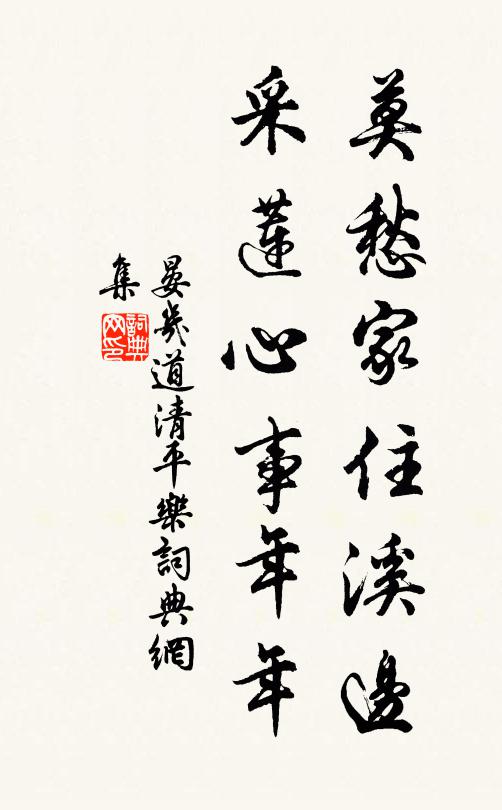 莫愁家住溪邊
采蓮心事年年
晏幾道清平樂詞典網
集
詞典網印